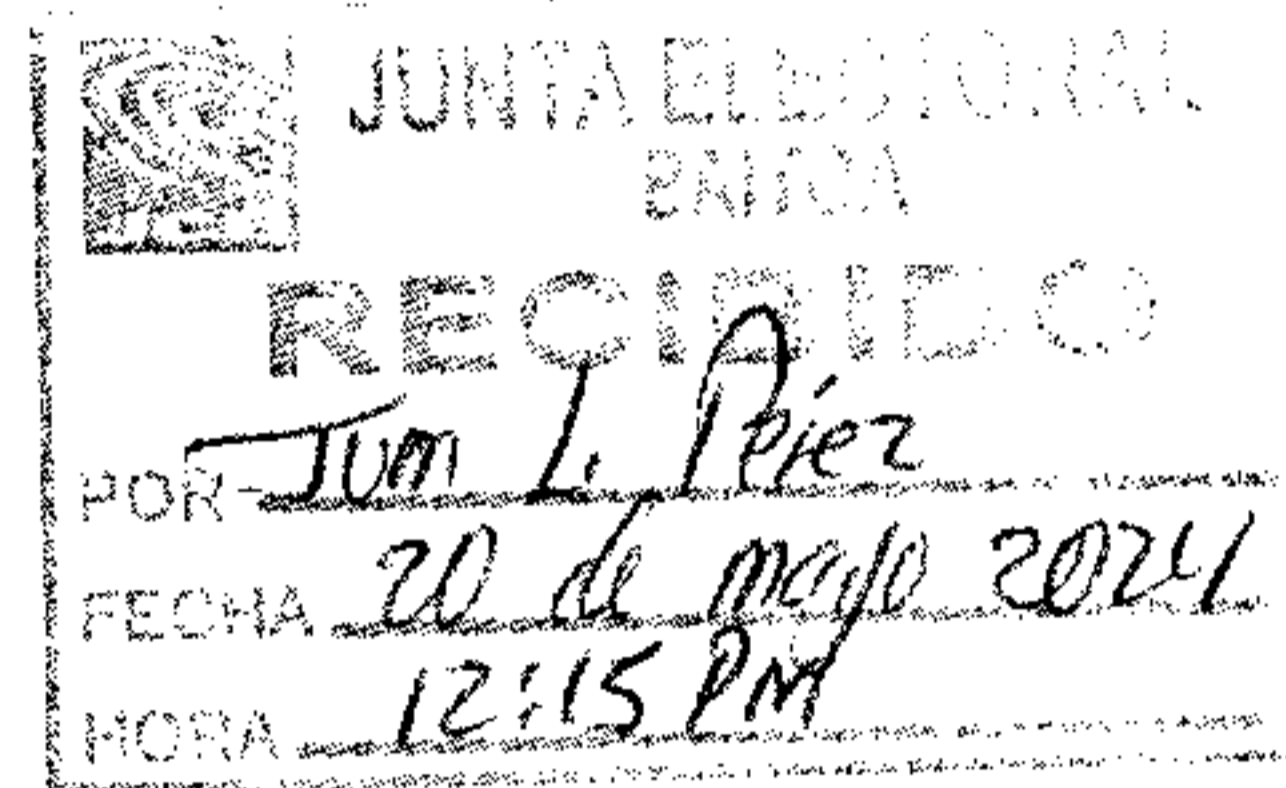 JUNTA ELECTORAL
BAITOA
RECIBIDO
POR Juan L. Pérez
FECHA 20 de mayo 2024
HORA 12:15 PM